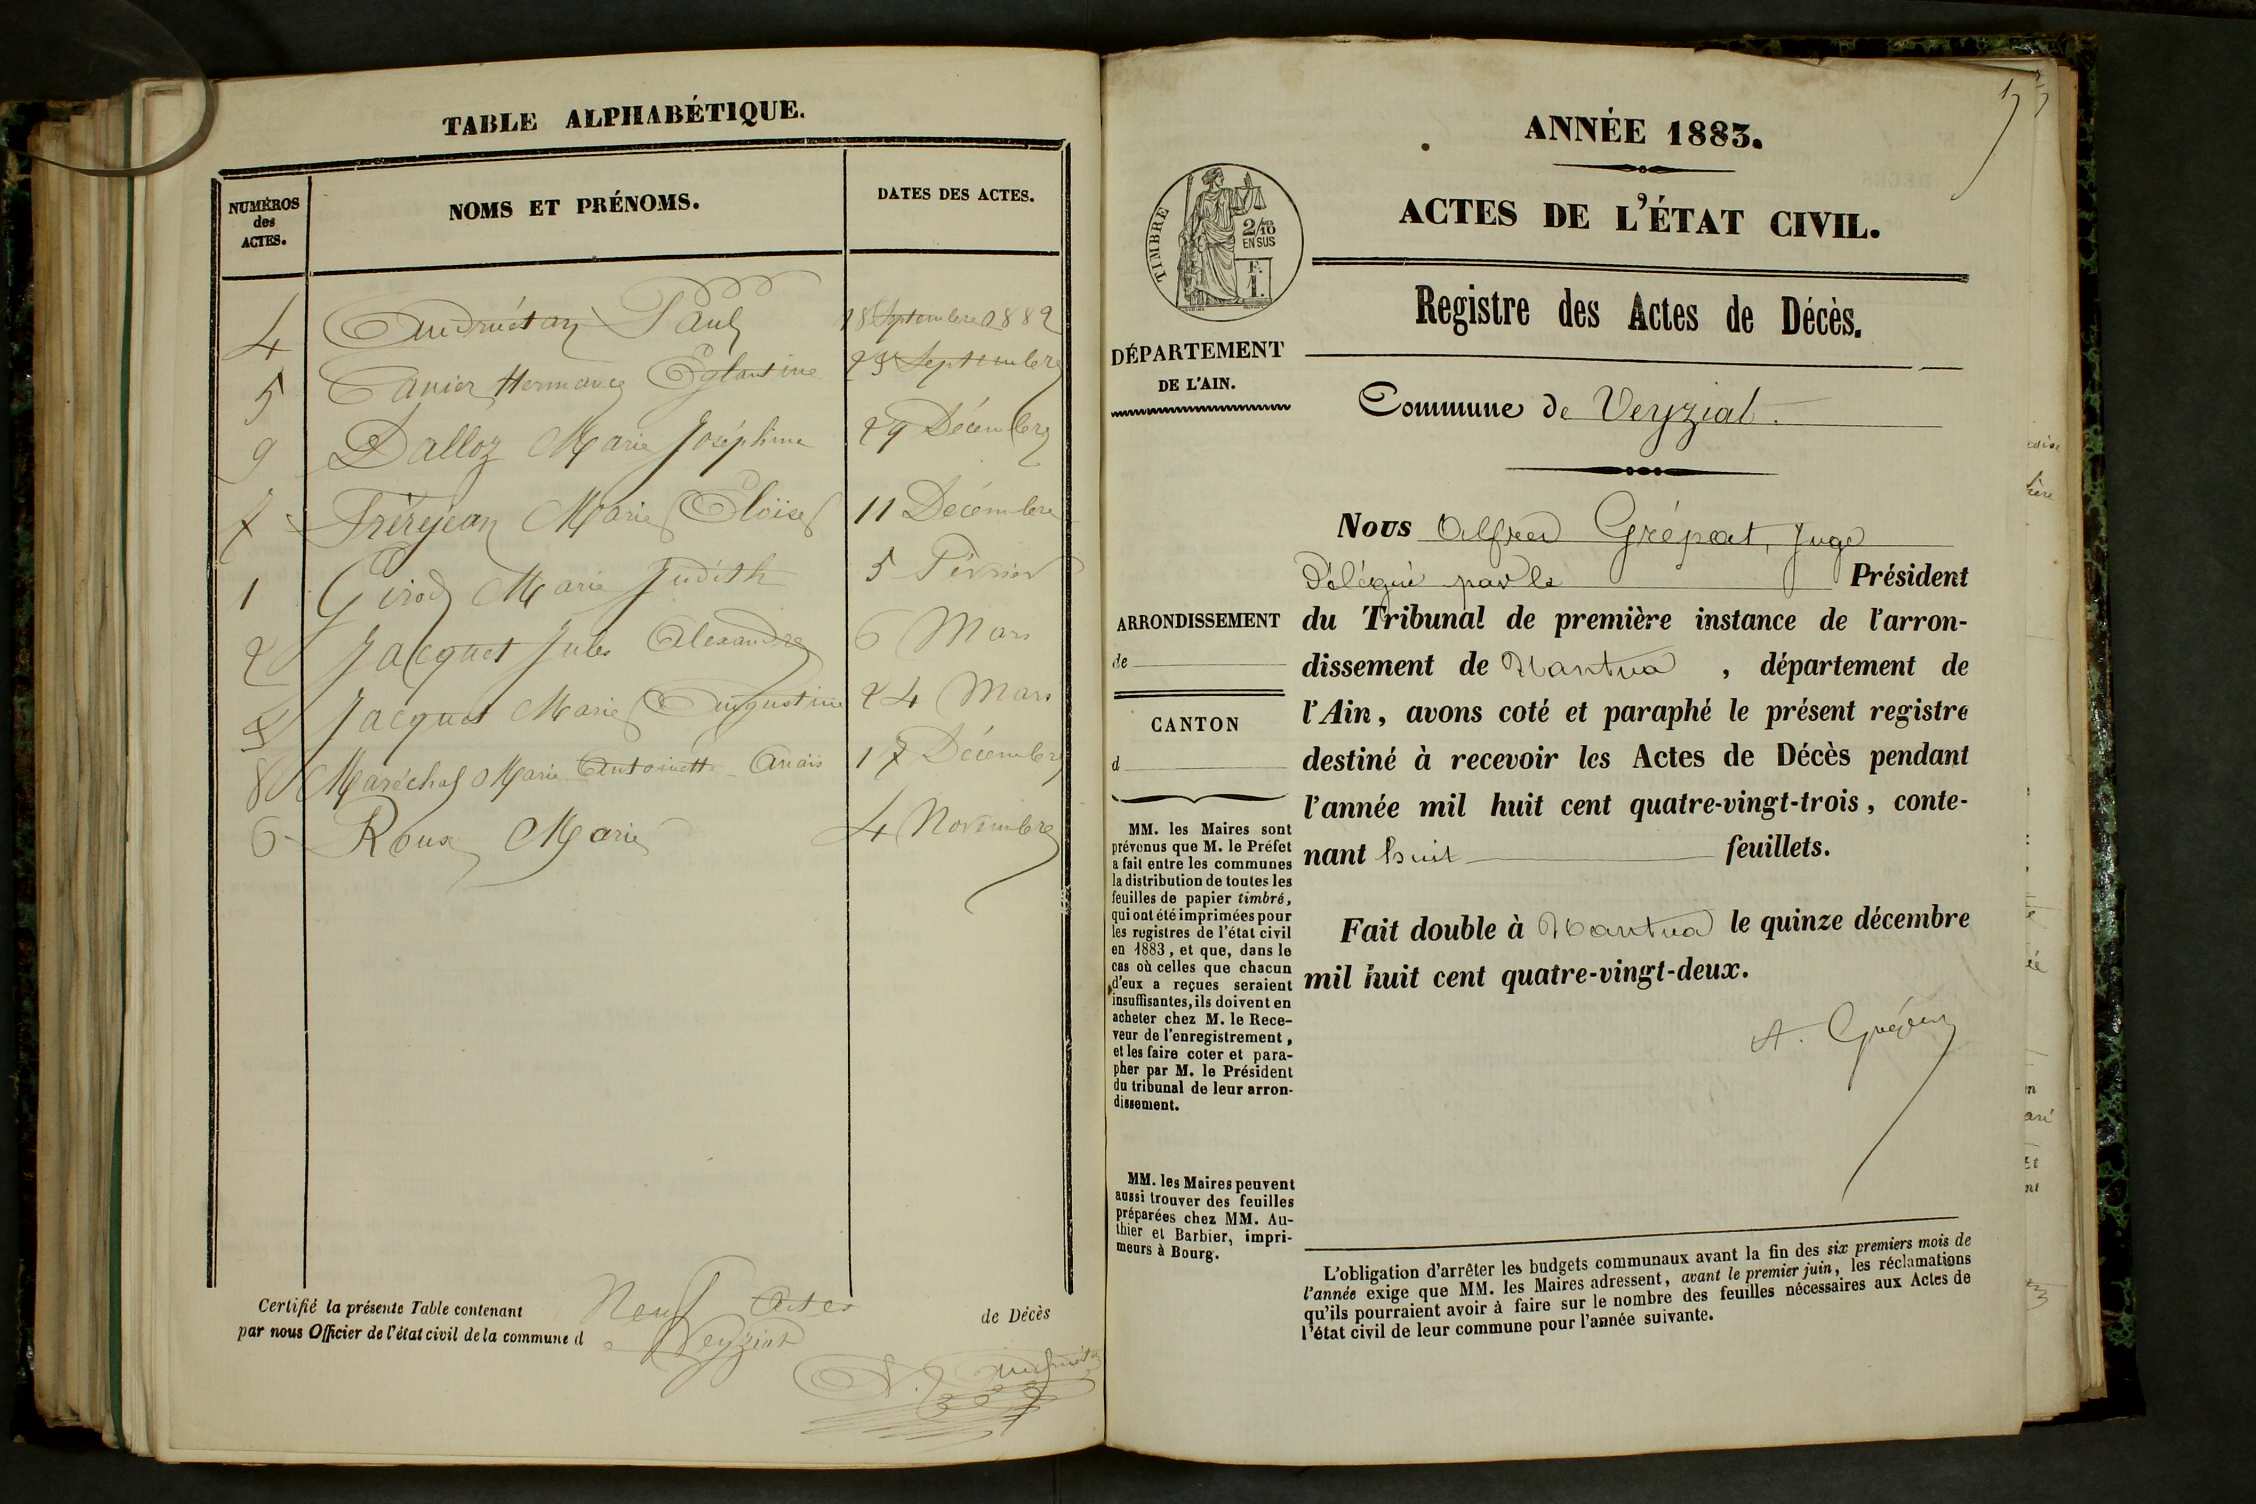 TABLE ALPHABÉTIQUE.
NUMÉROS
des
ACTES.
NOMS ET PRÉNOMS.
DATES DES ACTES.
4 Andruétan Paul 18 Septembre 1882
5 Canier Hermance Eglantine 23 Septembre
9 Dalloz Marie Joséphine 29 Décembre
7 Frèrejean Marie Eloïse 11 Décembre
1 Girod Marie Judith 5 Février
2 Jacquet Jules Alexandre 6 Mars
3 Jacquet Marie Augustine 24 Mars
8 Maréchal Marie Antoinette Anaïs 17 Décembre
6 Roux Marie 4 Novembre
Certifié la présente Table contenant Neuf Actes de Décès
par nous Officier de l'état civil de la commune d e Veyziat
ANNÉE 1883.
ACTES DE L'ÉTAT CIVIL.
TIMBRE
2/10
EN SUS
F.
1.
Registre des Actes de Décès.
DÉPARTEMENT
DE L'AIN.
Commune de Veyziat.
Nous Alfred Grépat, Juge
Délégué par le Président
du Tribunal de première instance de l'arron-
dissement de Nantua, département de
l'Ain, avons coté et paraphé le présent registre
destiné à recevoir les Actes de Décès pendant
l'année mil huit cent quatre-vingt-trois, conte-
nant huit feuillets.
Fait double à Nantua le quinze décembre
mil huit cent quatre-vingt-deux.
ARRONDISSEMENT
de
CANTON
d
MM. les Maires sont
prévenus que M. le Préfet
a fait entre les communes
la distribution de toutes les
feuilles de papier timbré,
qui ont été imprimées pour
les registres de l'état civil
en 1883, et que, dans le
cas où celles que chacun
d'eux a reçues seraient
insuffisantes, ils doivent en
acheter chez M. le Rece-
veur de l'enregistrement,
et les faire coter et para-
pher par M. le Président
du tribunal de leur arron-
dissement.
MM. les Maires peuvent
aussi trouver des feuilles
préparées chez MM. Au-
thier et Barbier, impri-
meurs à Bourg.
L'obligation d'arrêter les budgets communaux avant la fin des six premiers mois de
l'année exige que MM. les Maires adressent, avant le premier juin, les réclamations
qu'ils pourraient avoir à faire sur le nombre des feuilles nécessaires aux Actes de
l'état civil de leur commune pour l'année suivante.